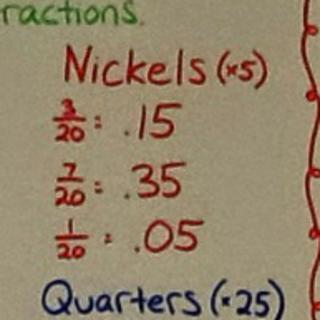 ractions.
Nickels (×5)
3/20 = .15
7/20 = .35
1/20 = .05
Quarters (×25)